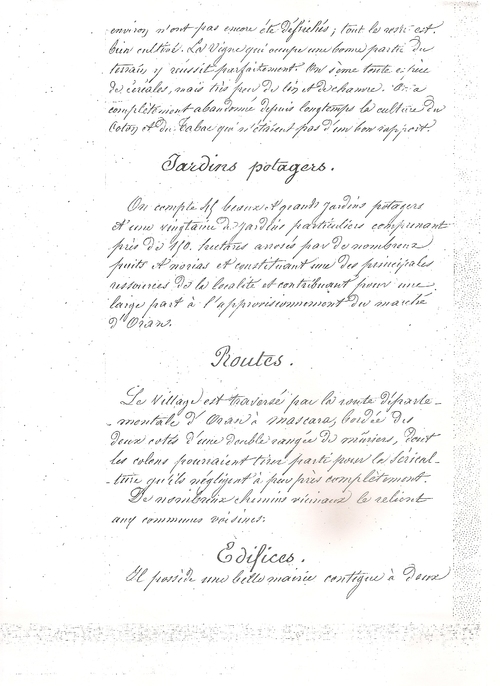 environ n'ont pas encore été défrichés; tout le reste est
bien cultivé. La Vigne qui occupe une bonne partie du
terrain y réussit parfaitement. On sème toute espèce
de céréales, mais très peu de lin et de chanvre. On a
complètement abandonné depuis longtemps la culture du
Coton et du Tabac qui n'étaient pas d'un bon rapport.
Jardins potagers.
On compte 45 beaux et grands jardins potagers
et une vingtaine de jardins particuliers comprenant
près de 150 hectares arrosés par de nombreux
puits et norias et constituant une des principales
ressources de la localité et contribuant pour une
large part à l'approvisionnement du marché
d'Oran.
Routes.
Le Village est traversé par la route départe-
-mentale d'Oran à mascara, bordée des
deux cotés d'une double rangée de mûriers, dont
les colons pourraient tirer parti pour la sérical-
-ture qu'ils négligent à peu près complètement.
De nombreux chemins vicinaux le relient
aux communes voisines.
Edifices.
Il possède une belle mairie contigue à deux